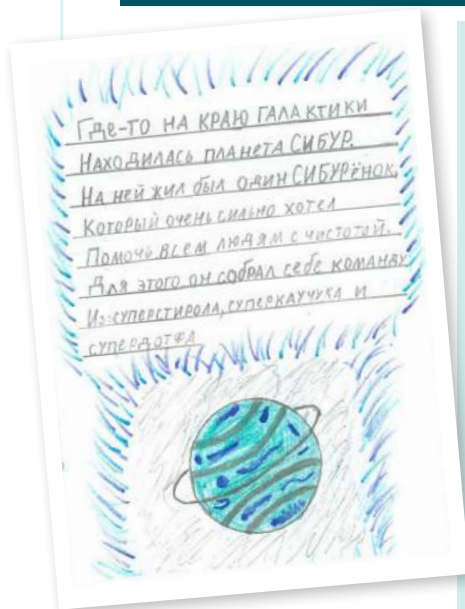 Где-то на краю галактики
находилась планета СИБУР.
На ней жил был один СИБУРёнок,
Который очень сильно хотел
Помочь всем людям с чистотой.
Для этого он собрал себе команду
Из:суперстирола, суперкаучука и
супердотфа